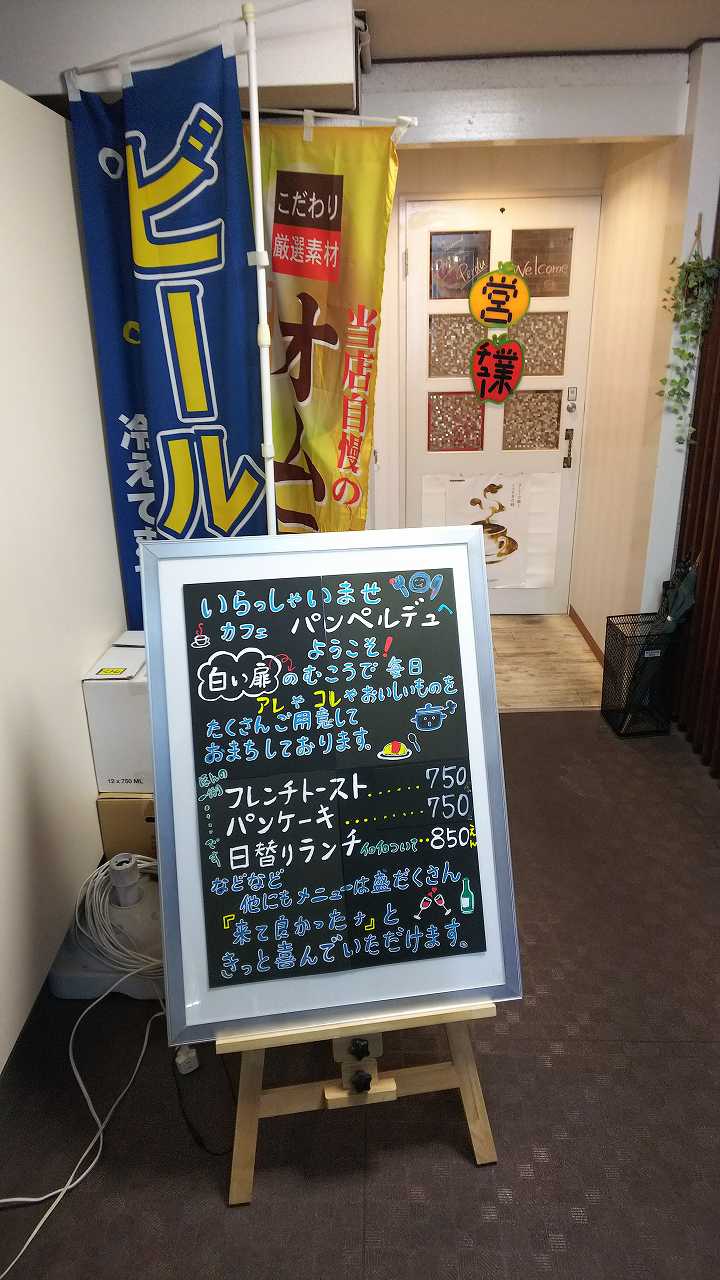 ビール
冷えてます
こだわり
厳選素材
当店自慢の
オム
Perdu
Welcome
営業
チュー
いらっしゃいませ
カフェ パンペルデュへ
ようこそ!
白い扉のむこうで毎日
アレやコレやおいしいものを
たくさんご用意して
おまちしております。
ほんの
一例
です
フレンチトースト......750
パンケーキ..........750
日替りランチ ｲﾛｲﾛついて...850えん
などなど
他にもメニューは盛だくさん
『来て良かったナ』と
きっと喜んでいただけます。
12 x 750 ML